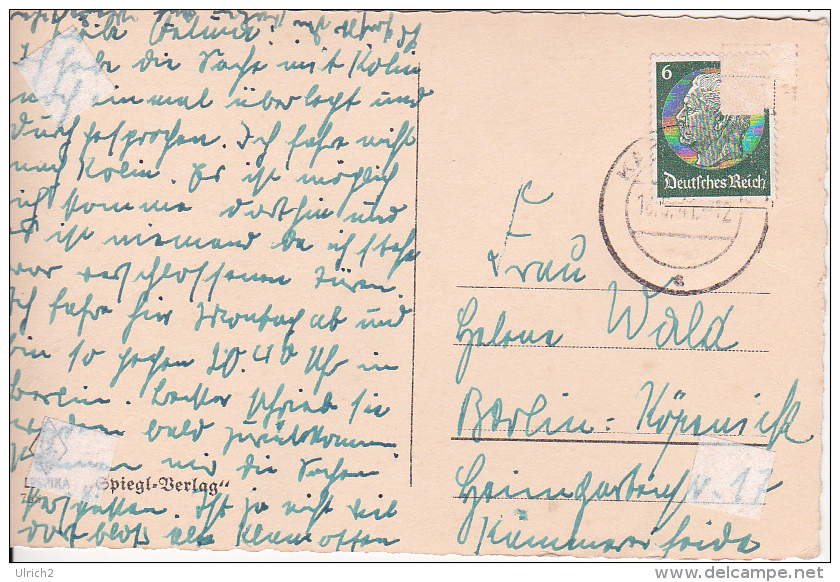 Ich habe die Sache mit Kolin
noch einmal überlegt und
durchgesprochen. Ich fahre nicht
nach Kolin. Es ist möglich
ich komme dorthin und
es ist niemand da ich stehe
vor verschlossenen Türen.
Ich fahre hier Montag ab und
bin so gegen 20.40 Uhr in
Berlin. schrieb sie
bald zurückkommen
mir die Sachen
Ist ja nicht viel
dort bloß alte Klamotten
"Spiegl-Verlag"
6
Deutsches Reich
Frau
Helene Wald
Berlin-Köpenick
17
Kämmererheide
Ulrich2
http://www.delcampe.net